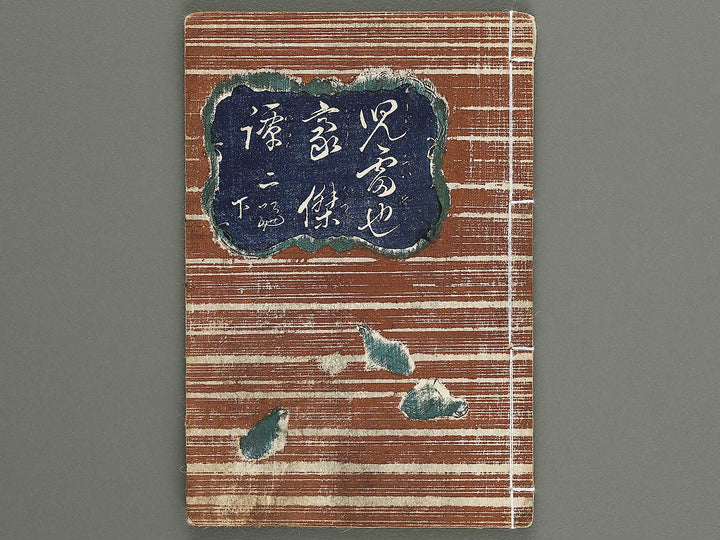 児雷也
豪傑
譚二編
下